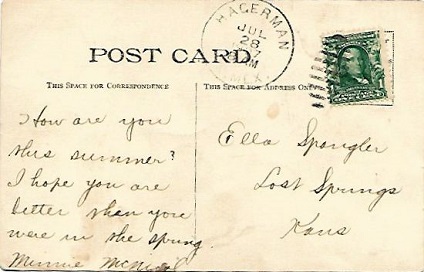 HAGERMAN
JUL
28
AM
MEX.
POST CARD.
THIS SPACE FOR CORRESPONDENCE
THIS SPACE FOR ADDRESS ONLY
How are you
this summer?
I hope you are
better than you
were in the spring.
Minnie
Ella Spangler
Lost Springs
Kans